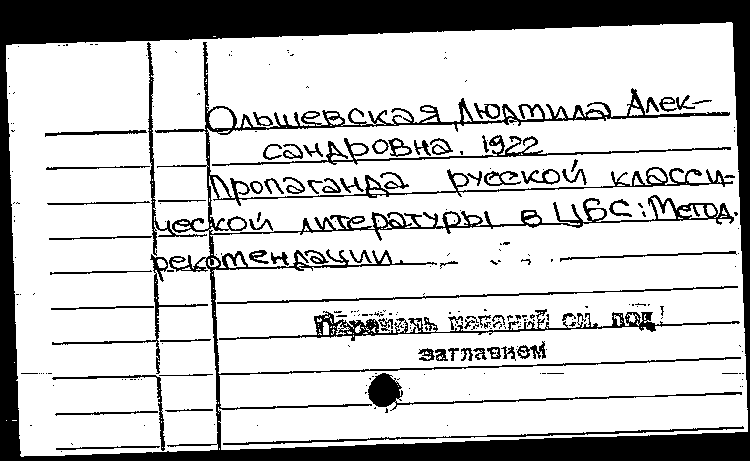 Ольшевская, Людмила Алек-
сандровна. 1922
Пропаганда русской класси-
ческой литературы в ЦБС: Метод.
рекомендации.
Перечень изданий см. под
заглавием